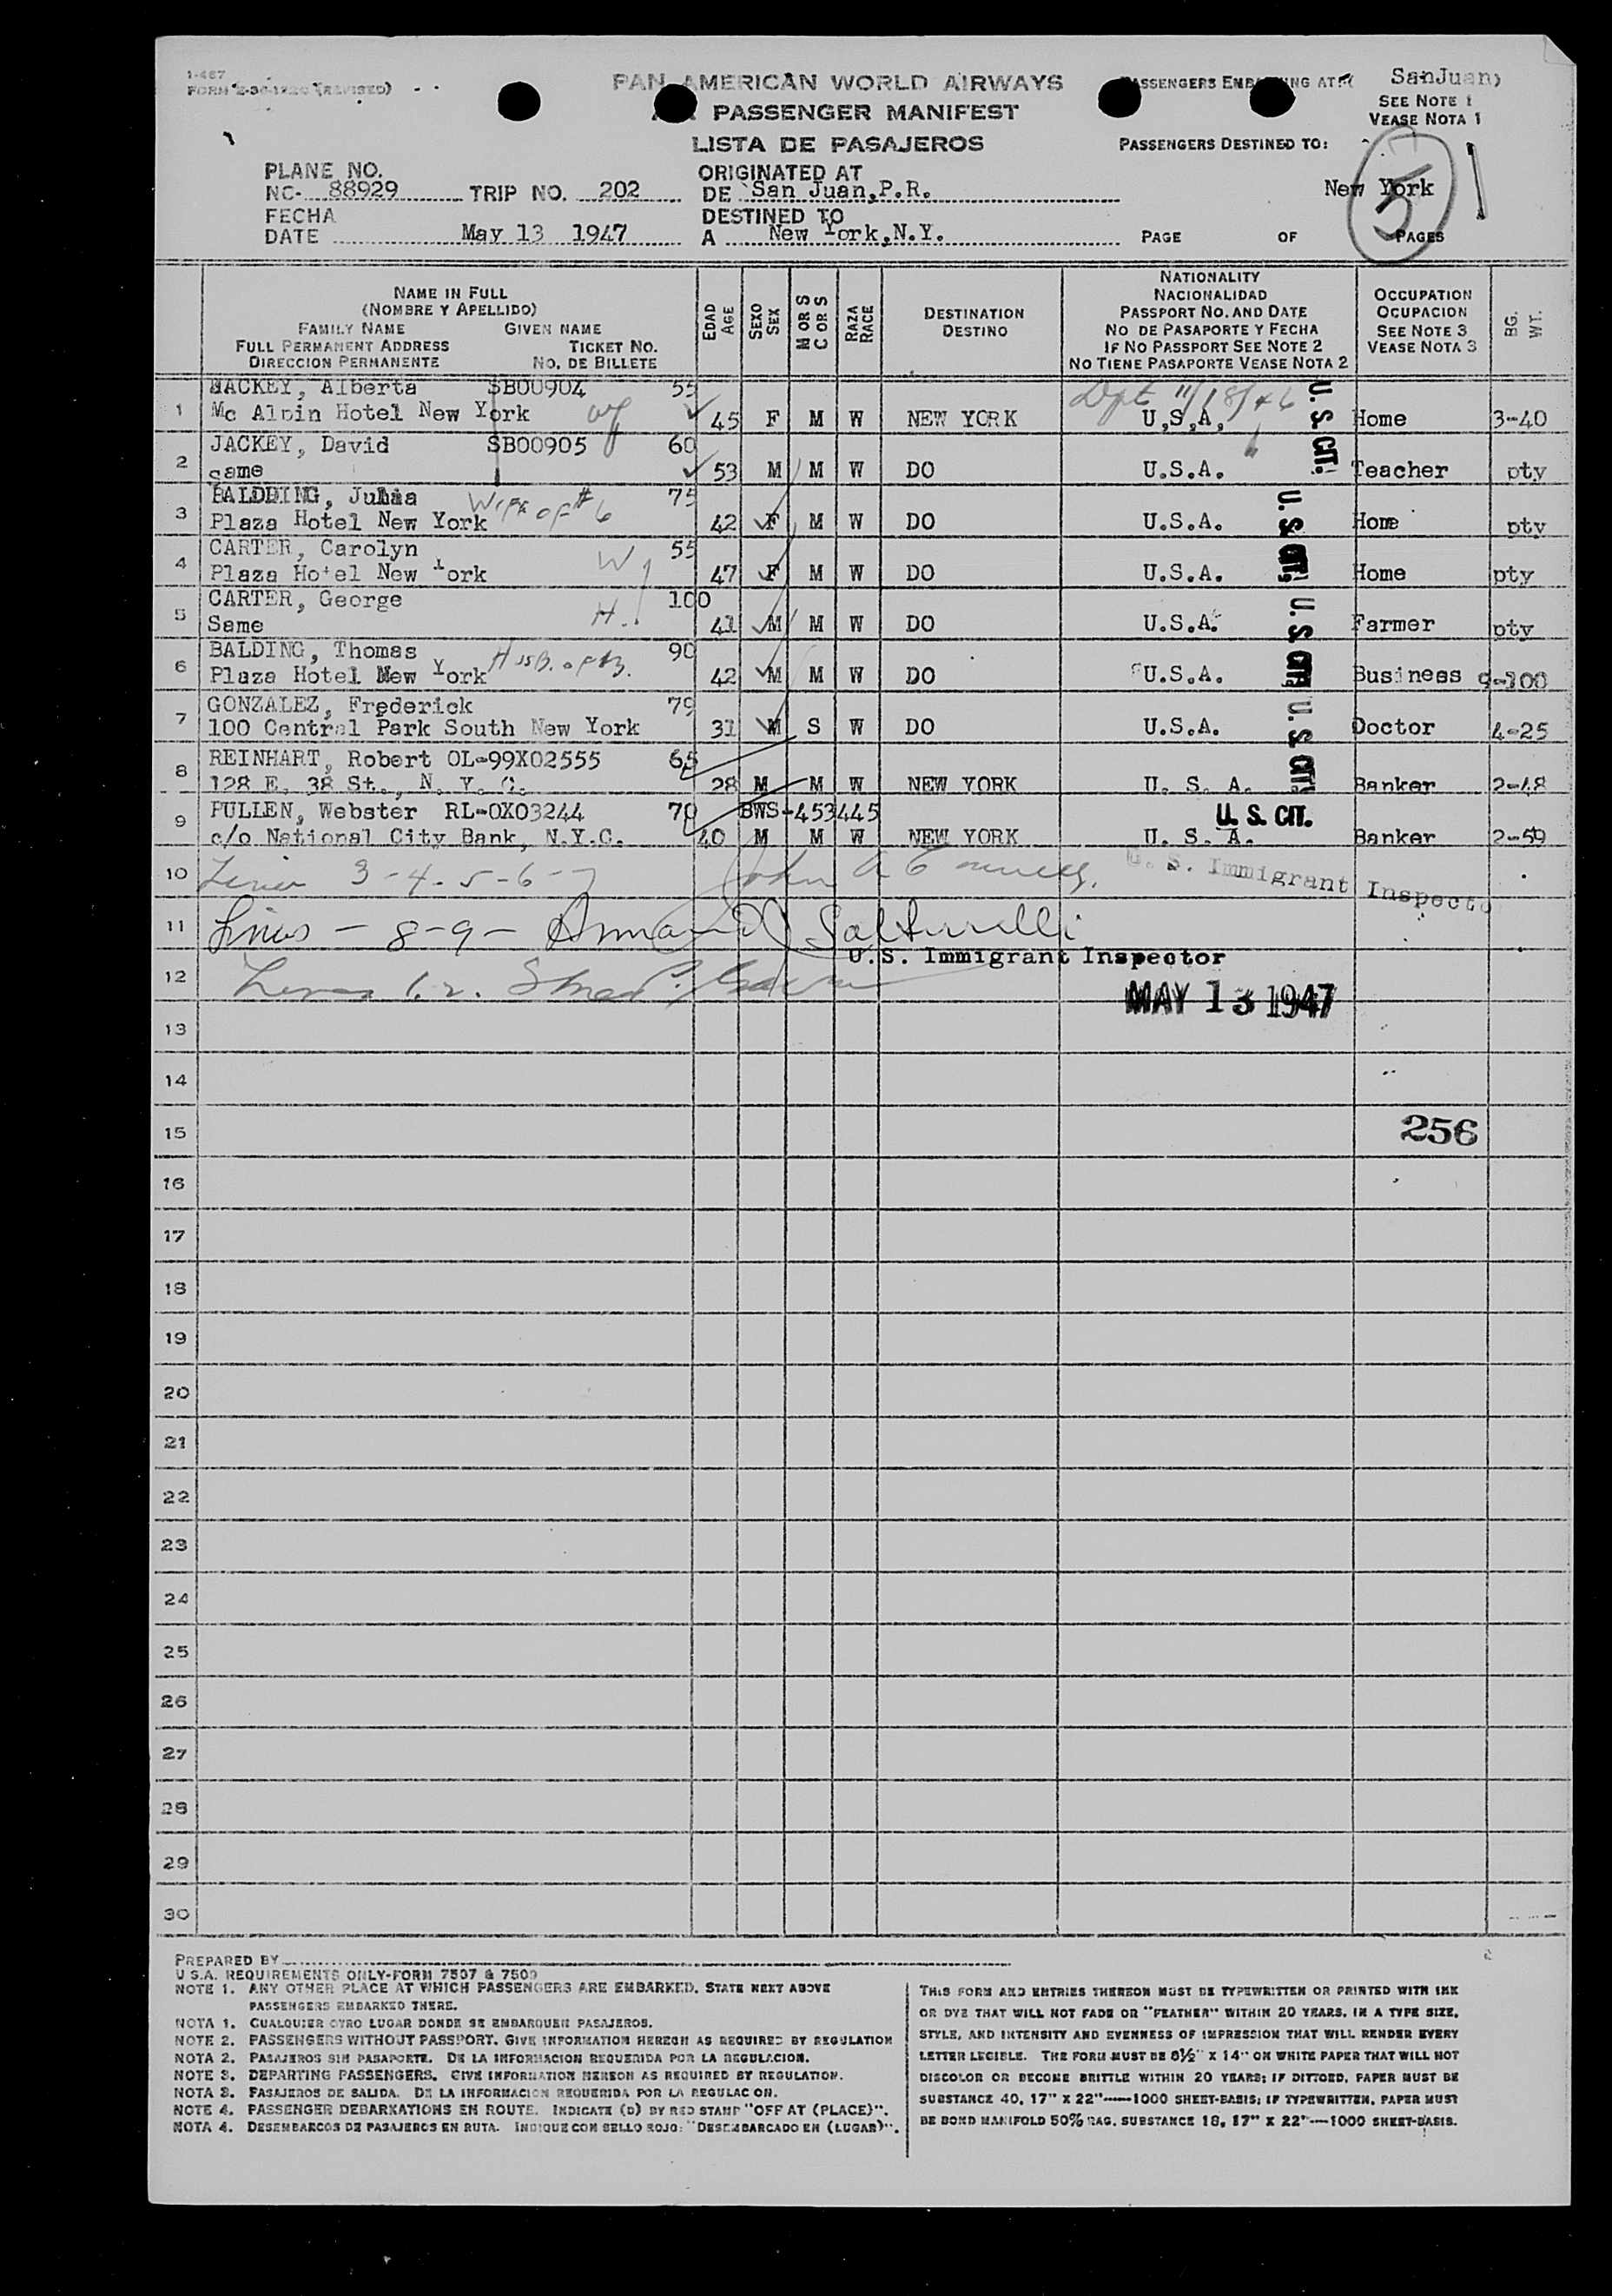 1-467
FORM (REVISED)
PAN AMERICAN WORLD AIRWAYS
PASSENGER MANIFEST
LISTA DE PASAJEROS
PASSENGERS EMBARKING AT: SanJuan,
SEE NOTE 1
VEASE NOTA 1
PASSENGERS DESTINED TO:
New York
5
PLANE NO.
NC- 88929 TRIP NO. 202
ORIGINATED AT
DE San Juan,P.R.
FECHA
DATE May 13 1947
DESTINED TO
A New York,N.Y.
PAGE OF PAGES
NAME IN FULL
(NOMBRE Y APELLIDO)
FAMILY NAME GIVEN NAME
FULL PERMANENT ADDRESS TICKET NO.
DIRECCION PERMANENTE NO. DE BILLETE
EDAD AGE
SEXO SEX
M OR S C OR S
RAZA RACE
DESTINATION
DESTINO
NATIONALITY
NACIONALIDAD
PASSPORT NO. AND DATE
NO DE PASAPORTE Y FECHA
IF NO PASSPORT SEE NOTE 2
NO TIENE PASAPORTE VEASE NOTA 2
OCCUPATION
OCUPACION
SEE NOTE 3
VEASE NOTA 3
BG. WT.
MACKEY, Alberta SB00904 55 Dept 11/18/46
1 Mc Alpin Hotel New York 45 F M W NEW YORK U,S,A, U.S. CIT. Home 3-40
JACKEY, David SB00905 60
2 same 53 M M W DO U.S.A. Teacher pty
BALDDING, Julia Wife of #6 75
3 Plaza Hotel New York 42 F M W DO U.S.A. U.S. CIT. Home pty
CARTER, Carolyn W 55
4 Plaza Hotel New York 47 F M W DO U.S.A. Home pty
CARTER, George H. 100
5 Same 41 M M W DO U.S.A. U.S. CIT. Farmer pty
BALDING, Thomas Husb. of #3. 90
6 Plaza Hotel New York 42 M M W DO U.S.A. Business 9-100
GONZALEZ, Frederick 79
7 100 Central Park South New York 31 M S W DO U.S.A. U.S. CIT. Doctor 4-25
REINHART, Robert OL-99X02555 65
8 128 E. 38 St., N. Y. C. 28 M M W NEW YORK U. S. A. Banker 2-48
PULLEN, Webster RL-0X03244 70 BWS-453445 U. S. CIT.
9 c/o National City Bank, N.Y.C. 40 M M W NEW YORK U. S. A. Banker 2-59
10 Lines 3-4-5-6-7 John A U. S. Immigrant Inspecto
11 Lines - 8-9-
U.S. Immigrant Inspector
12 Lines 1. 2.
MAY 13 1947
13
14
15 256
16
17
18
19
20
21
22
23
24
25
26
27
28
29
30
PREPARED BY
U S.A. REQUIREMENTS ONLY-FORM 7507 & 7509
NOTE 1. ANY OTHER PLACE AT WHICH PASSENGERS ARE EMBARKED. STATE NEXT ABOVE
PASSENGERS EMBARKED THERE.
NOTA 1. CUALQUIER OTRO LUGAR DONDE SE EMBARQUEN PASAJEROS.
NOTE 2. PASSENGERS WITHOUT PASSPORT. GIVE INFORMATION HEREON AS REQUIRED BY REGULATION
NOTA 2. PASAJEROS SIN PASAPORTE. DE LA INFORMACION REQUERIDA POR LA REGULACION.
NOTE 3. DEPARTING PASSENGERS. GIVE INFORMATION HEREON AS REQUIRED BY REGULATION.
NOTA 3. PASAJEROS DE SALIDA. DE LA INFORMACION REQUERIDA POR LA REGULACION.
NOTE 4. PASSENGER DEBARKATIONS EN ROUTE. INDICATE (D) BY RED STAMP "OFF AT (PLACE)".
NOTA 4. DESEMBARCOS DE PASAJEROS EN RUTA. INDIQUE CON SELLO ROJO: "DESEMBARCADO EN (LUGAR)".
THIS FORM AND ENTRIES THEREON MUST BE TYPEWRITTEN OR PRINTED WITH INK
OR DYE THAT WILL NOT FADE OR "FEATHER" WITHIN 20 YEARS, IN A TYPE SIZE,
STYLE, AND INTENSITY AND EVENNESS OF IMPRESSION THAT WILL RENDER EVERY
LETTER LEGIBLE. THE FORM MUST BE 8½" X 14" ON WHITE PAPER THAT WILL NOT
DISCOLOR OR BECOME BRITTLE WITHIN 20 YEARS; IF DITTOED, PAPER MUST BE
SUBSTANCE 40, 17" X 22"——1000 SHEET-BASIS; IF TYPEWRITTEN, PAPER MUST
BE BOND MANIFOLD 50% RAG. SUBSTANCE 18, 17" X 22"——1000 SHEET-BASIS.